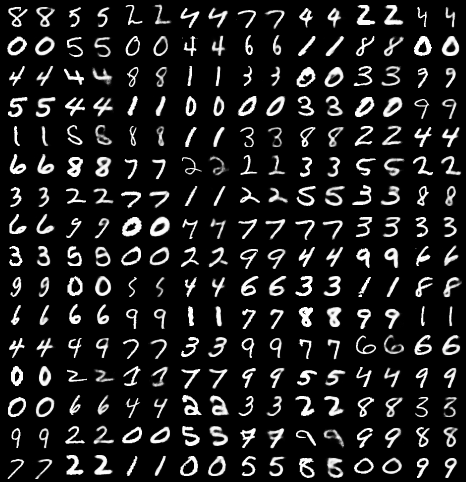 8 8 5 5 2 2 4 4 7 7 4 4 2 2 4 4
0 0 5 5 0 0 4 4 6 6 1 1 8 8 0 0
4 4 4 4 8 8 1 1 3 3 0 0 3 3 9 9
5 5 4 4 1 1 0 0 0 0 3 3 0 0 9 9
1 1 5 6 8 8 1 1 3 3 8 8 2 2 4 4
6 6 8 8 7 7 2 2 1 1 3 3 5 5 2 2
3 3 2 2 7 7 1 1 2 2 5 5 3 3 8 8
6 6 9 9 0 0 7 7 7 7 7 7 3 3 3 3
3 3 5 5 0 0 2 2 9 9 4 4 9 9 6 6
9 9 0 0 5 5 4 4 6 6 3 3 1 1 8 8
6 6 6 6 9 9 1 1 7 7 8 8 9 9 1 1
4 4 4 9 7 7 3 3 9 9 7 7 6 6 6 6
0 0 2 2 1 1 7 7 9 9 5 5 4 4 9 9
0 0 6 6 4 4 2 2 3 3 2 2 8 8 3 3
9 9 2 2 0 0 5 5 7 7 9 9 9 9 8 8
7 7 2 2 1 1 0 0 5 5 8 8 0 0 9 9